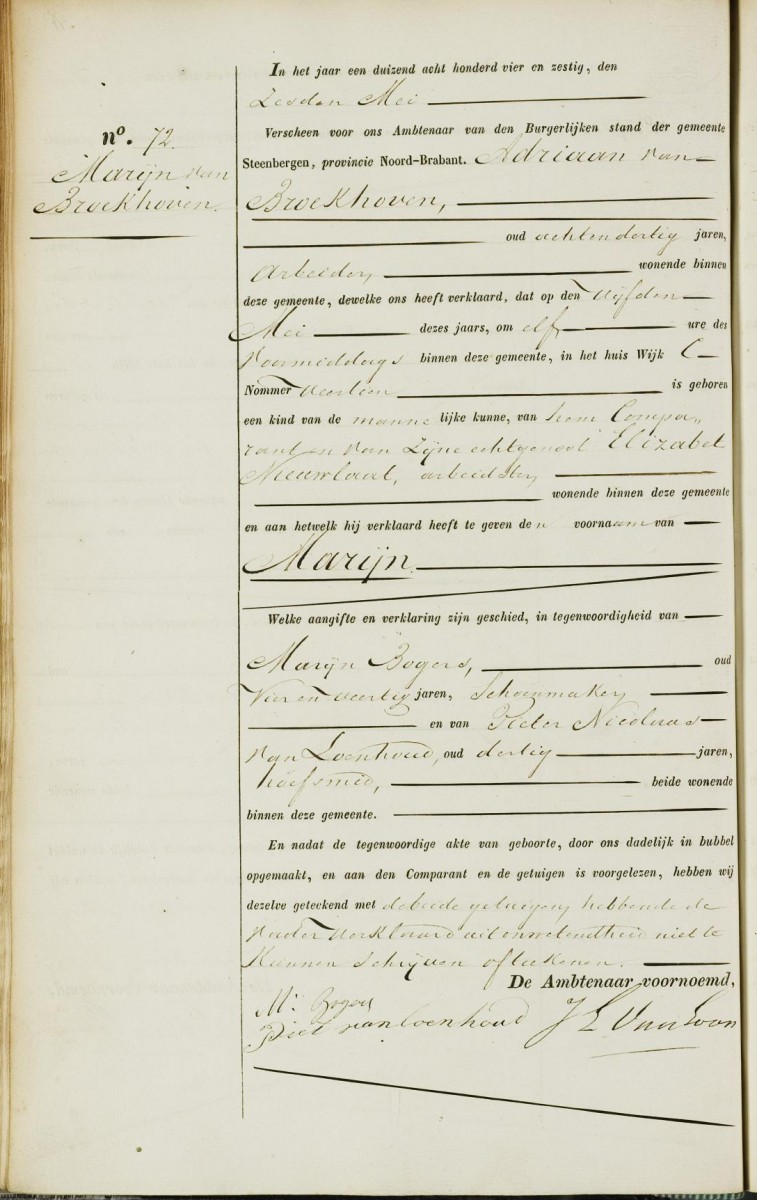 nº. 72.
Marijn van
Broekhoven.
In het jaar een duizend acht honderd vier en zestig, den
Zesden Mei
Verscheen voor ons Ambtenaar van den Burgerlijken stand der gemeente
Steenbergen, provincie Noord-Brabant. Adriaan van
Broekhoven,
oud achtendertig jaren,
arbeider, wonende binnen
deze gemeente, dewelke ons heeft verklaard, dat op den vijfden
Mei dezes jaars, om elf ure des
voormiddags binnen deze gemeente, in het huis Wijk C
Nommer veertien is geboren
een kind van de manne lijke kunne, van hem Compa„
rant en van Zijne echtgenoot Elizabet
Nieuwlaat, arbeidster,
wonende binnen deze gemeente
en aan hetwelk hij verklaard heeft te geven de n voornaam van
Marijn.
Welke aangifte en verklaring zijn geschied, in tegenwoordigheid van
Marijn Bogers, oud
Vier en veertig jaren, Schoenmaker,
en van Pieter Nicolaas
van Loenhoud, oud dertig jaren,
hoefsmid, beide wonende
binnen deze gemeente.
En nadat de tegenwoordige akte van geboorte, door ons dadelijk in bubbel
opgemaakt, en aan den Comparant en de getuigen is voorgelezen, hebben wij
dezelve geteekend met de beide getuigen, hebbende de
Vader verklaard uit onwetendheid niet te
Kunnen Schrijven of teekenen.
De Ambtenaar voornoemd,
M: Bogers
Piet van Loenhoud J L Van Loon